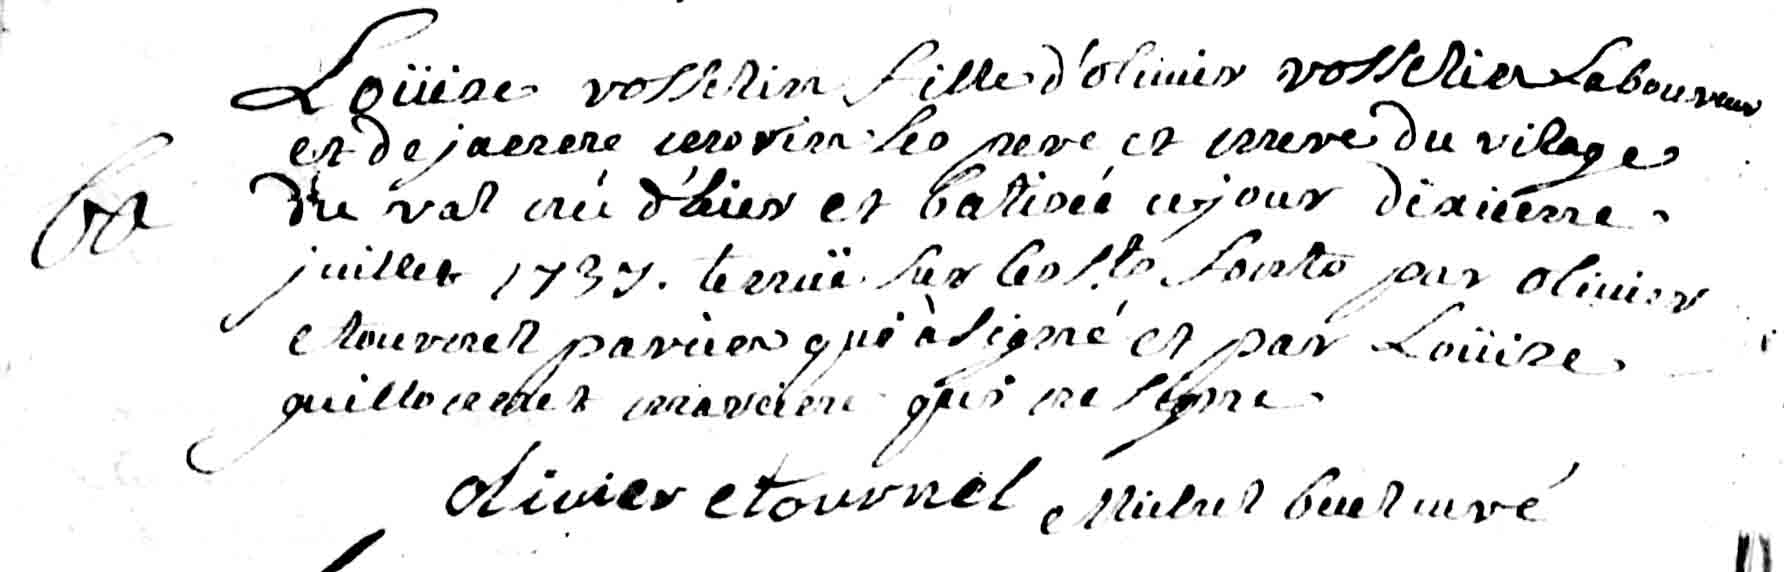 Loüise vosselin fille d'olivier vosselin Laboureur
et de jaenene morin ses pere et mere du vilage
du val née d'hier et batisée ce jour dixieme
juillet 1737. tenuë sur les sts fonts par olivier
etournel parien qui à signé et par Loüise
guillo mariene qui ne signe
olivier etournel Michel buet curé